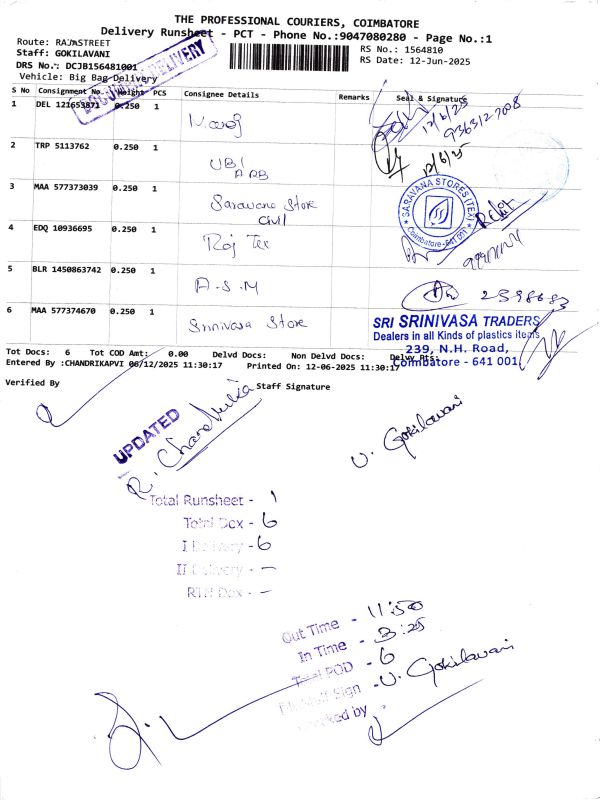 THE PROFESSIONAL COURIERS, COIMBATORE
Delivery Runsheet - PCT - Phone No.:9047080280 - Page No.:1
Route: RAJASTREET
Staff: GOKILAVANI
DRS No.: DCJB156481001
Vehicle: Big Bag Delivery
RS No.: 1564810
RS Date: 12-Jun-2025
DOCUMENT DELIVERY
S No Consignment No. Weight PCS Consignee Details Remarks Seal & Signature
1 DEL 121653871 0.250 1 12/6/25
9363127008
2 TRP 5113762 0.250 1 UBI 12/6/25
ARB
3 MAA 577373039 0.250 1 Saravana Store
Civil
SARAVANA STORES (TEX)
Coimbatore-641 001
4 EDQ 10936695 0.250 1 Raj Tex
5 BLR 1450863742 0.250 1 A.S.M
6 MAA 577374670 0.250 1 Srinivasa Store
SRI SRINIVASA TRADERS
Dealers in all Kinds of plastics items
239, N.H. Road,
Coimbatore - 641 001.
Tot Docs: 6 Tot COD Amt: 0.00 Delvd Docs: Non Delvd Docs: Delvy Rts:
Entered By :CHANDRIKAPVI 06/12/2025 11:30:17 Printed On: 12-06-2025 11:30:17
Verified By Staff Signature
UPDATED
R. Chandrika
V. Gokilavani
Total Runsheet - 1
Total Dox - 6
I Delivery - 6
II Delivery - -
RTN Dox - -
Out Time - 11:50
In Time - 3:25
Total POD - 6
Sign - V. Gokilavani
Checked by